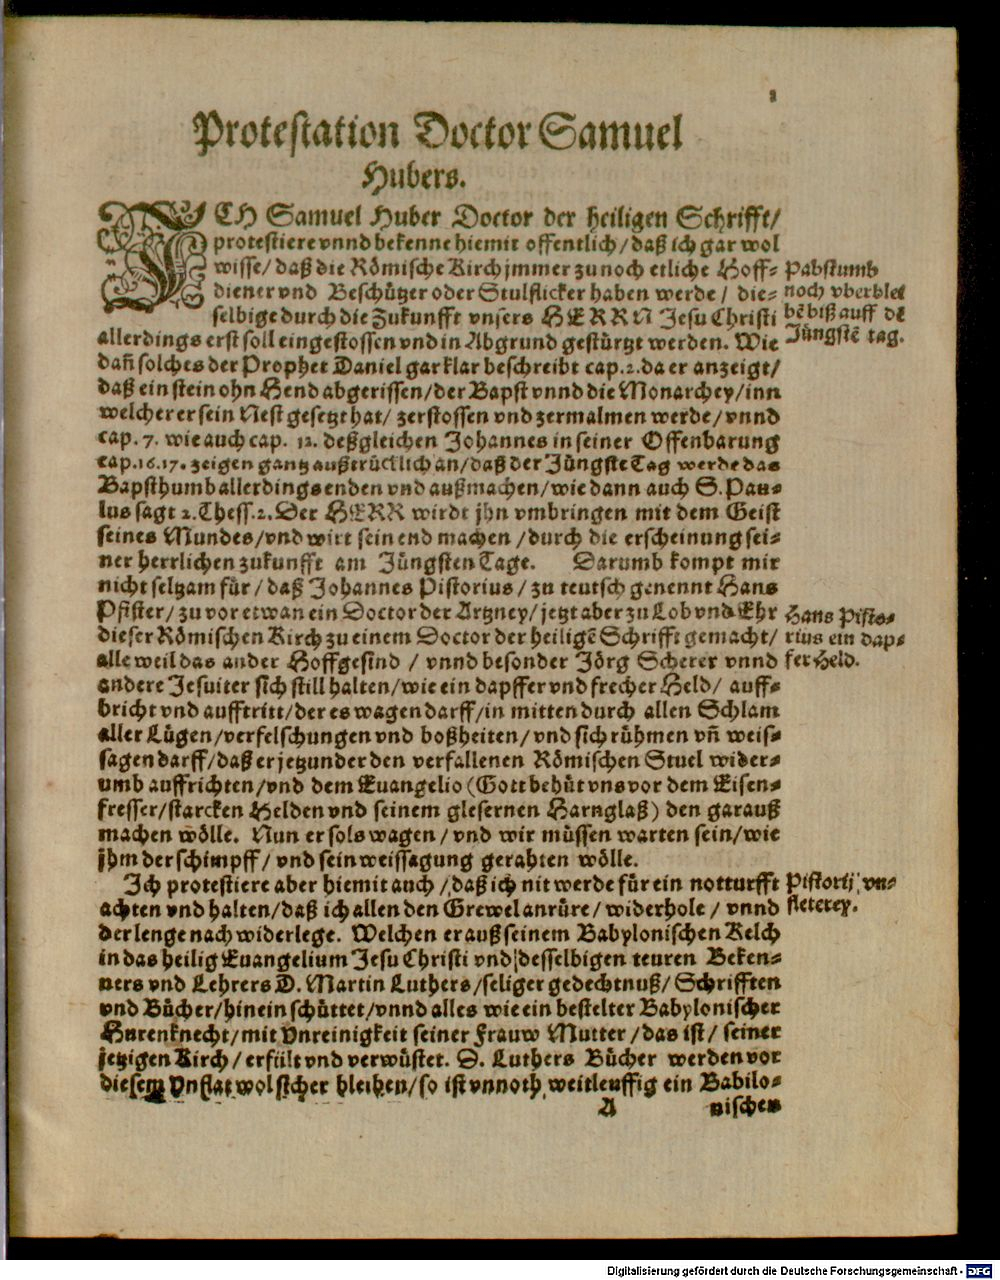 1
Protestation Doctor Samuel
Hubers.
ICH Samuel Huber Doctor der heiligen Schrifft/
protestiere vnnd bekenne hiemit offentlich/daß ich gar wol
wisse/daß die Römische Kirch jmmer zu noch etliche Hoff-
diener vnd Beschützer oder Stulflicker haben werde/ die-
selbige durch die Zukunfft vnsers HERRN Jesu Christi
allerdings erst soll eingestossen vnd in Abgrund gestürtzt werden. Wie
dañ solches der Prophet Daniel gar klar beschreibt cap.2.da er anzeigt/
daß ein stein ohn Hend abgerissen/der Bapst vnnd die Monarchey/inn
welcher er sein Nest gesetzt hat/ zerstossen vnd zermalmen werde/vnnd
cap.7. wie auch cap. 12. deßgleichen Johannes in seiner Offenbarung
cap.16.17. zeigen gantz außtrücklich an/daß der Jüngste Tag werde das
Bapsthumb allerdings enden vnd außmachen/wie dann auch S.Pau-
lus sagt 2.Thess.2.Der HERR wirdt jhn vmbringen mit dem Geist
seines Mundes/vnd wirt sein end machen /durch die erscheinung sei-
ner herrlichen zukunfft am Jüngsten Tage. Darumb kompt mir
nicht seltzam für/daß Johannes Pistorius/zu teutsch genennt Hans
Pfister/zu vor etwan ein Doctor der Artzney/jetzt aber zu Lob vnd Ehr
dieser Römischen Kirch zu einem Doctor der heiligẽ Schrifft gemacht/
alle weil das ander Hoffgesind / vnnd besonder Jörg Scherer vnnd
andere Jesuiter sich still halten/wie ein dapffer vnd frecher Held/ auff-
bricht vnd aufftritt/der es wagen darff/in mitten durch allen Schlam
aller Lügen/verfelschungen vnd boßheiten/vnd sich rühmen vñ weis-
sagen darff/daß er jetzunder den verfallenen Römischen Stuel wider-
umb auffrichten/vnd dem Euangelio (Gott behüt vns vor dem Eisen-
fresser/starcken Helden vnd seinem glesernen Harnglaß) den garauß
machen wölle. Nun er sols wagen/vnd wir müssen warten sein/wie
jhm der schimpff/vnd sein weissagung gerahten wölle.
Ich protestiere aber hiemit auch /daß ich nit werde für ein notturfft
achten vnd halten/daß ich allen den Grewel anrüre/widerhole / vnnd
der lenge nach widerlege. Welchen er auß seinem Babylonischen Kelch
in das heilig Euangelium Jesu Christi vnd desselbigen teuren Beken-
ners vnd Lehrers D. Martin Luthers/seliger gedechtnuß/Schrifften
vnd Bücher/hinein schüttet/vnnd alles wie ein bestelter Babylonischer
Hurenknecht/mit Vnreinigkeit seiner Frauw Mutter/das ist/ seiner
jetzigen Kirch/erfült vnd verwüstet. D. Luthers Bücher werden vor
diesem Vnflat wol sicher bleiben/so ist vnnoth weitleuffig ein Babilo-
A nischen
Pabstumb
noch vberblei
bẽ biß auff dẽ
Jüngstẽ tag.
Hans Pisto-
rius ein dap-
fer Held.
Pistorij vn-
fleterey.
Digitalisierung gefördert durch die Deutsche Forschungsgemeinschaft - DFG